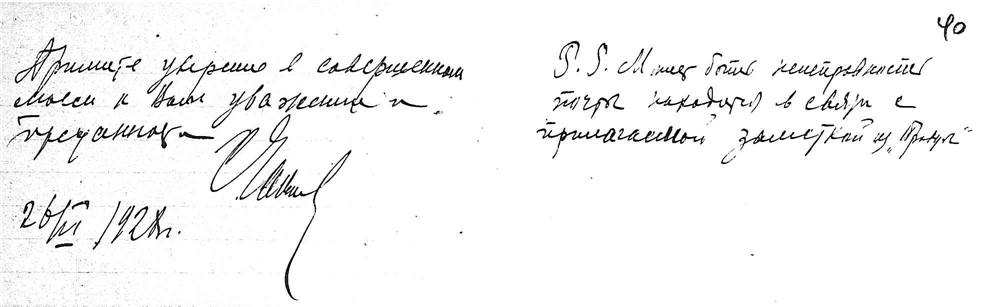 Примите уверение в совершенном
моем к Вам уважении и
преданности
26/VI 1928г.
40
P.S. Может быть неисправность
почты находится в связи с
прилагаемой заметкой из „Правды“